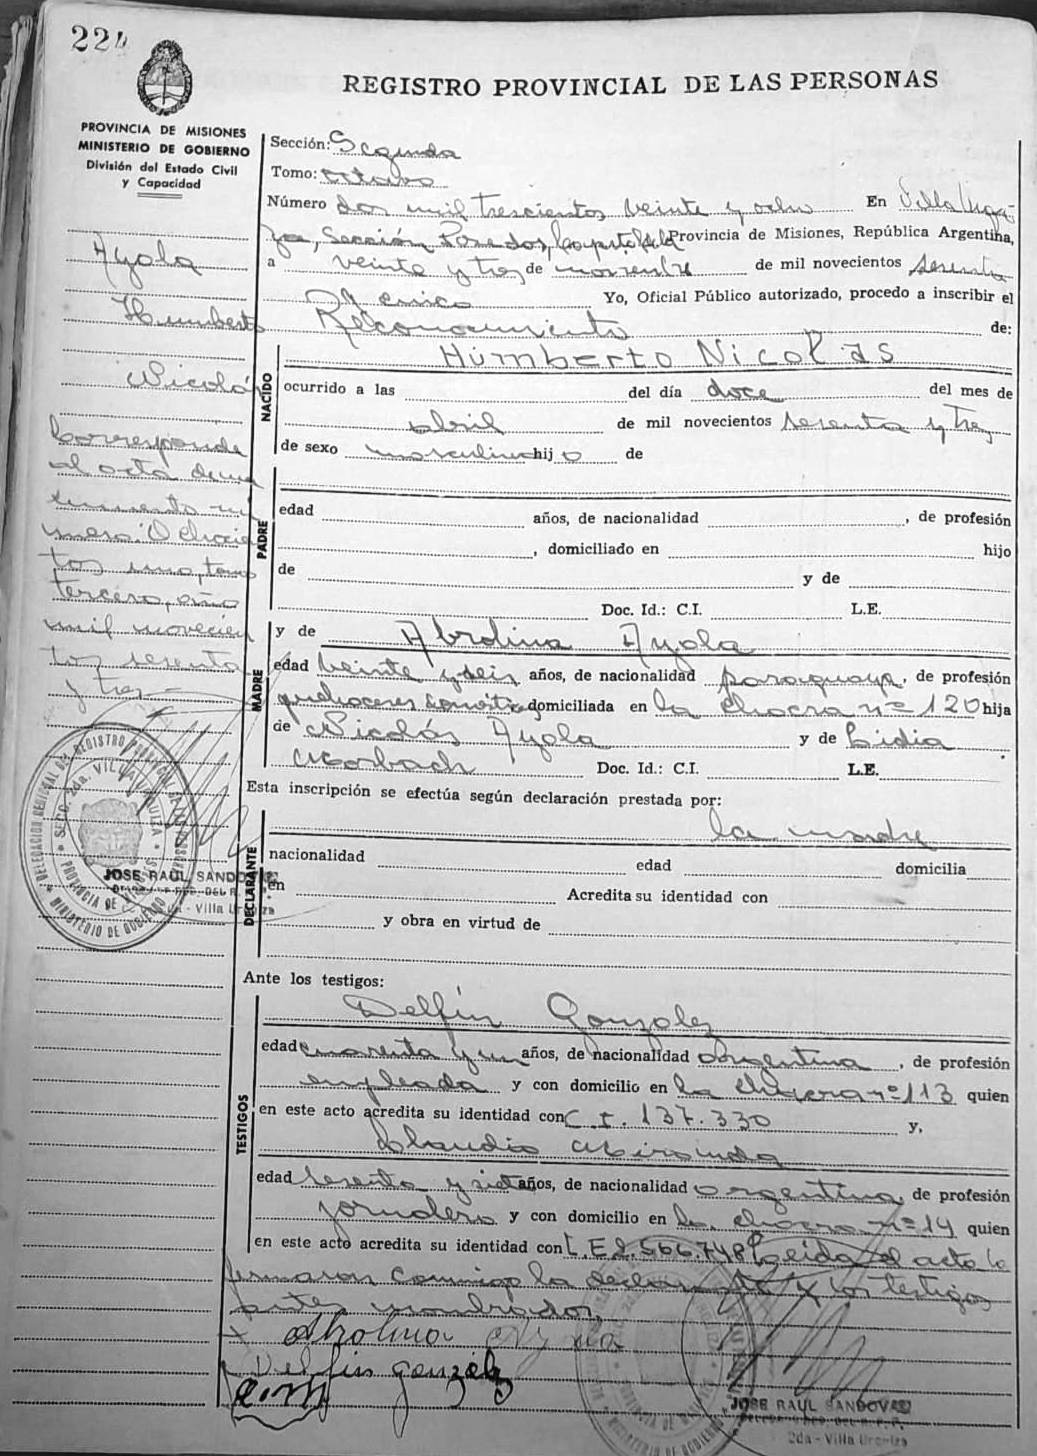 224
REGISTRO PROVINCIAL DE LAS PERSONAS
PROVINCIA DE MISIONES
MINISTERIO DE GOBIERNO
División del Estado Civil
y Capacidad
Ayala
Humberto
Nicolás
Corresponde
al acta de na
cimiento nú
mero: Ochocien
tos uno, tomo
tercero, año
mil novecien
tos sesenta
y tres.-
Sección: Segunda
Tomo: octavo
Número dos mil trescientos veinte y ocho En Villa Urqui
za, Sección Posadas, Capital de la Provincia de Misiones, República Argentina,
a veinte y tres de noviembre de mil novecientos sesenta
y cinco Yo, Oficial Público autorizado, procedo a inscribir el
Reconocimiento de:
NACIDO
HUMBERTO NICOLAS
ocurrido a las del día doce del mes de
abril de mil novecientos sesenta y tres
de sexo masculino hijo de
PADRE
edad años, de nacionalidad , de profesión
, domiciliado en hijo
de y de
Doc. Id.: C.I. L.E.
MADRE
y de Abrolina Ayala
edad veinte y seis años, de nacionalidad paraguaya, de profesión
quehaceres domiciliada en la chacra nº 120 hija
de Nicolás Ayala y de Lidia
Morbach Doc. Id.: C.I. L.E.
Esta inscripción se efectúa según declaración prestada por:
DECLARANTE
la madre
nacionalidad edad domicilia
en Acredita su identidad con
y obra en virtud de
Ante los testigos:
TESTIGOS
Delfín Gonzalez
edad cuarenta y un años, de nacionalidad argentina, de profesión
empleada y con domicilio en la chacra nº 113 quien
en este acto acredita su identidad con C.I. 137.330 y,
Claudio Miranda
edad sesenta y siete años, de nacionalidad argentina, de profesión
jornalero y con domicilio en la chacra nº 14 quien
en este acto acredita su identidad con L.E 2.566.748 Leida el acta la
firmaron conmigo la declarante y los testigos
antes nombrados,
x Abrolina
Delfin gonzález
C.M
DELEGACION REGIONAL DEL REGISTRO PROVINCIAL DE LAS PERSONAS
SECC. 2da. VILLA URQUIZA
PROVINCIA DE MISIONES
MINISTERIO DE GOBIERNO
JOSE RAUL SANDOVAL
2da - Villa Urquiza
JOSE RAUL SANDOVAL
2da - Villa Urquiza